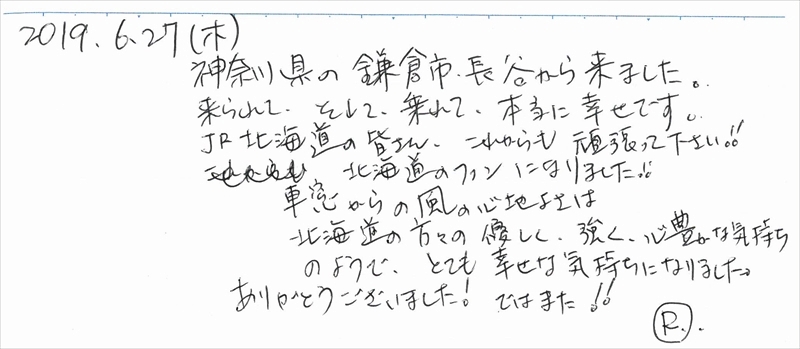 2019.6.27(木)
神奈川県の鎌倉市・長谷から来ました。
来られて、そして、乗れて、本当に幸せです。
JR北海道の皆さん、これからも頑張って下さい!!
北海道のファンになりました!!
車窓からの風の心地よさは
北海道の方々の優しく、強く、心豊かな気持ち
のようで、とても幸せな気持ちになりました。
ありがとうございました! ではまた!!
R.